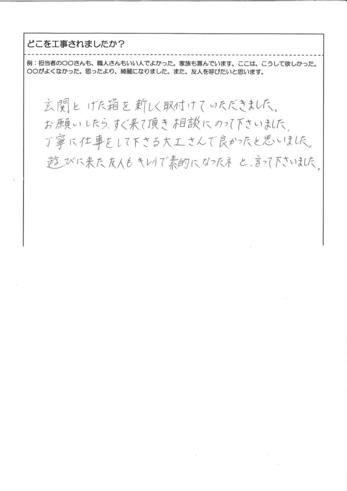 どこを工事されましたか？
例：担当者の〇〇さんも、職人さんもいい人でよかった。家族も喜んでいます。ここは、こうして欲しかった。
〇〇がよくなかった。思ったより、綺麗になりました。また、友人を呼びたいと思います。
玄関とげた箱を新しく取付けていただきました。
お願いしたら、すぐ来て頂き相談にのって下さいました。
丁寧に仕事をして下さる大工さんで良かったと思いました。
遊びに来た友人もキレイで素的になったネと、言って下さいました。